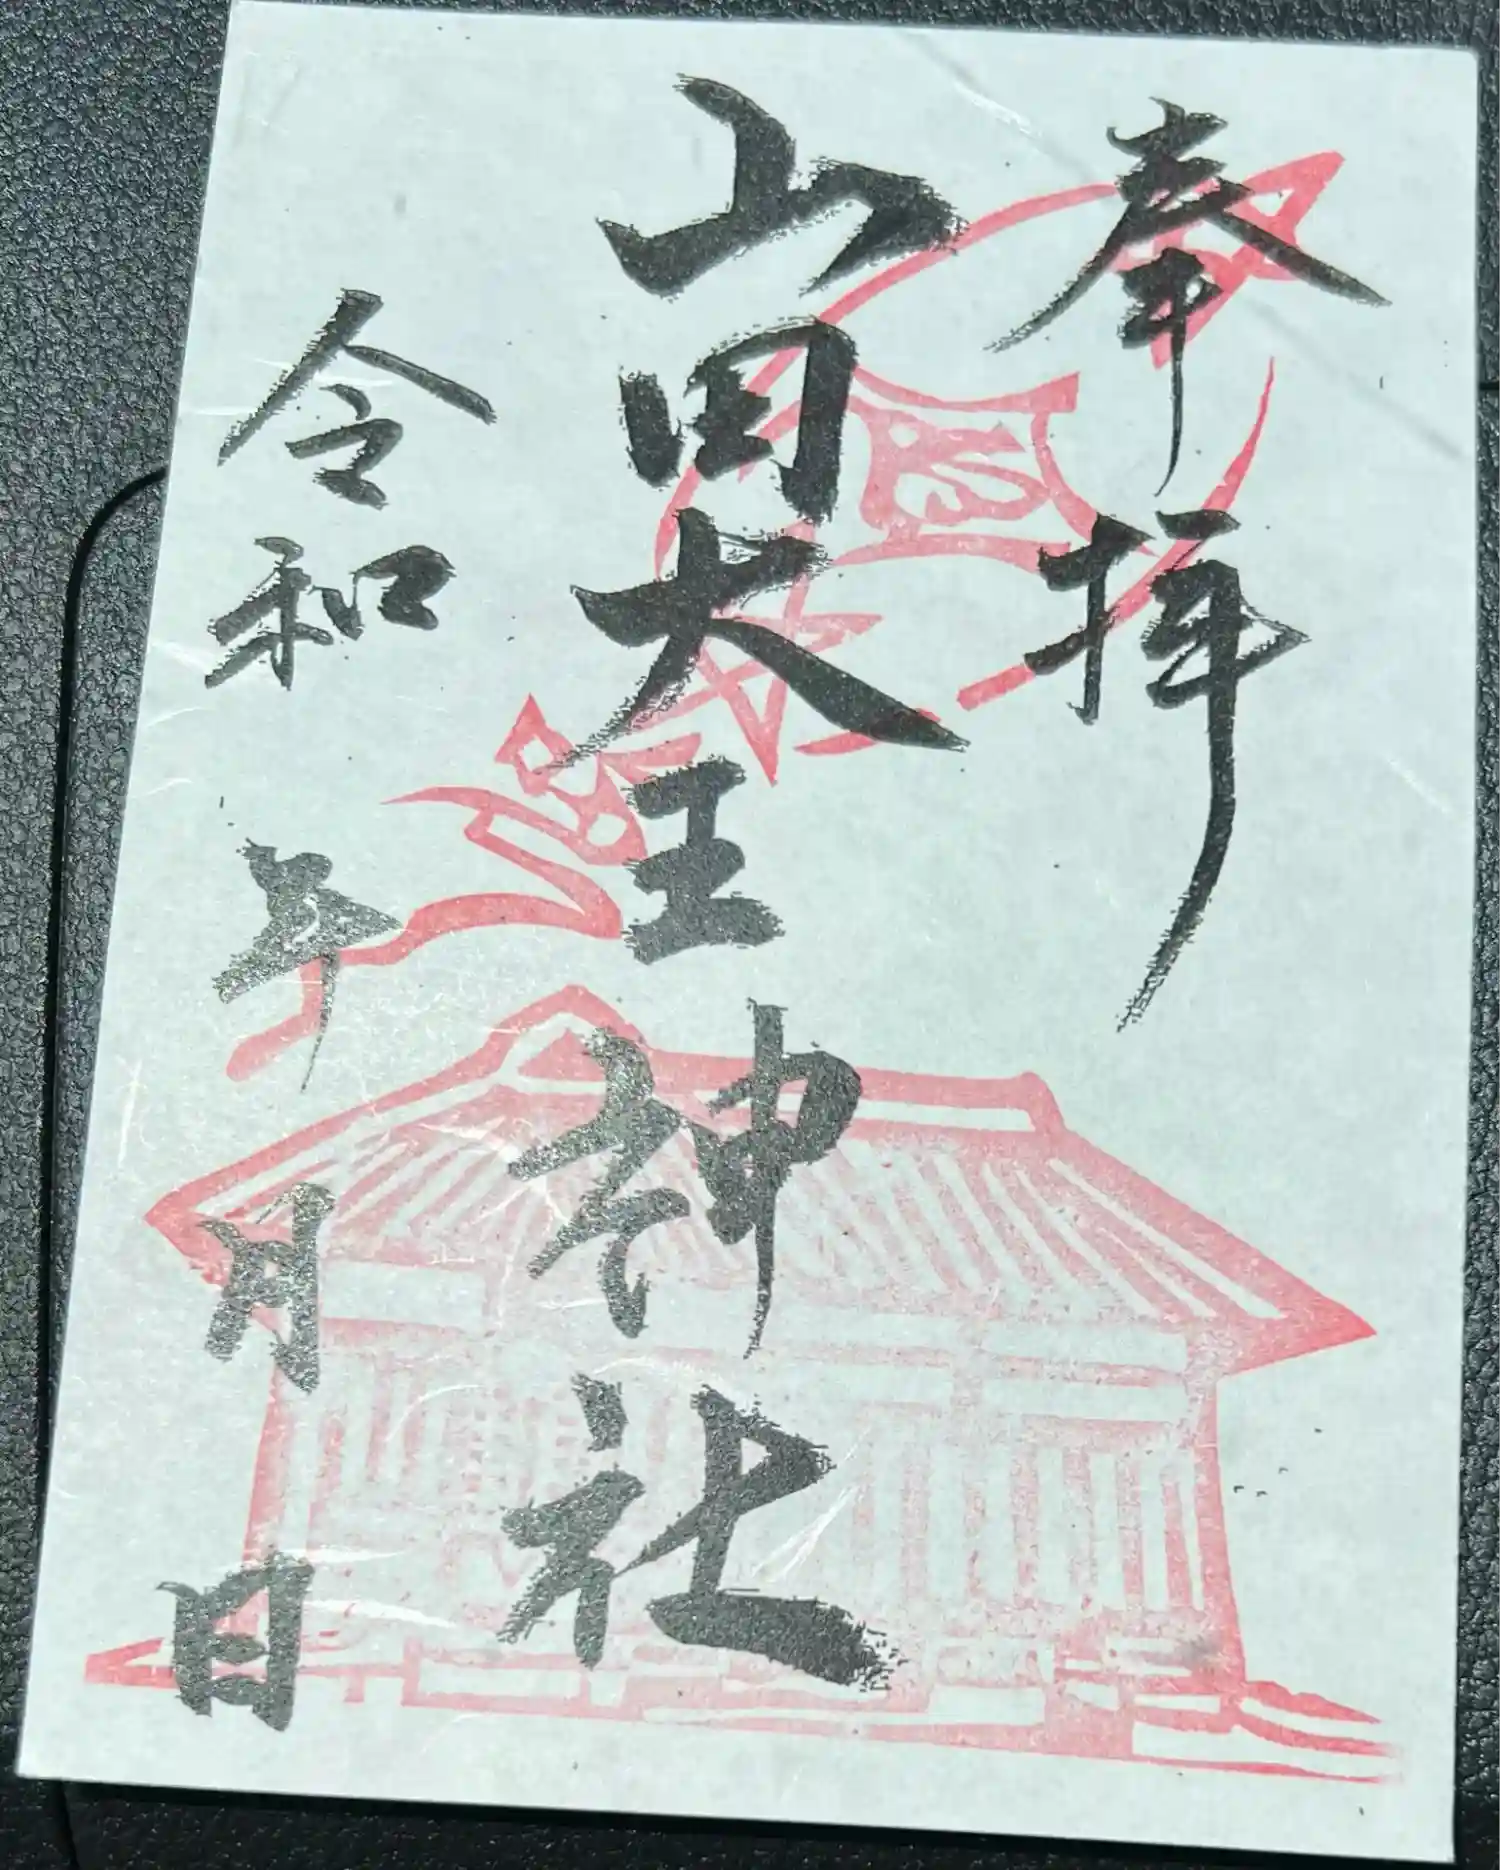 奉拝
山田大王神社
令和 年 月 日